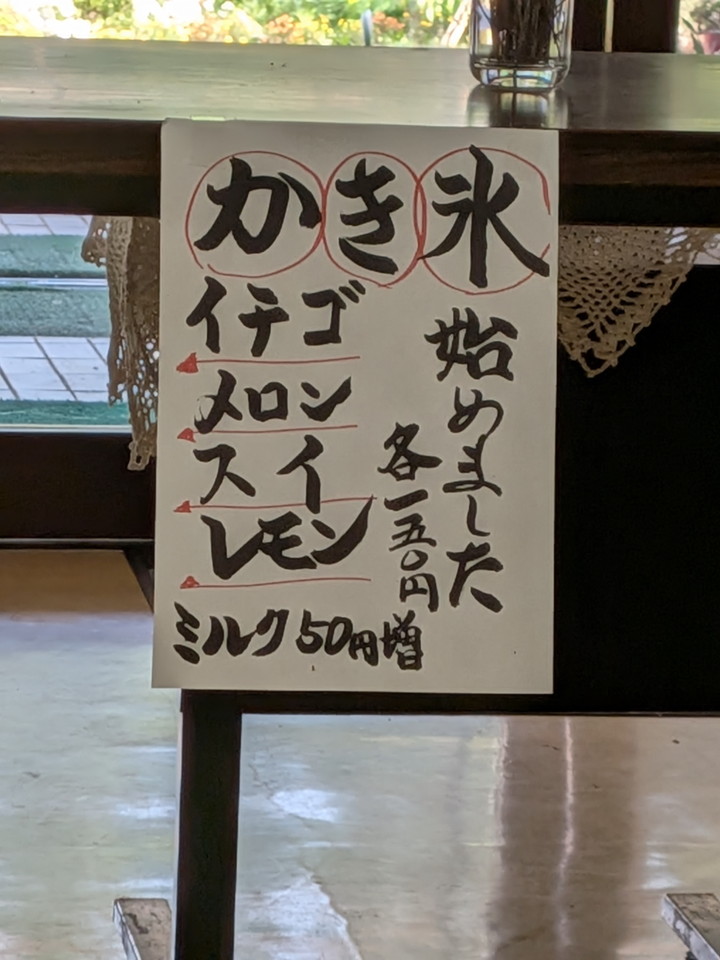 かき氷
始めました
各一五〇円
イチゴ
メロン
スイ
レモン
ミルク50円増